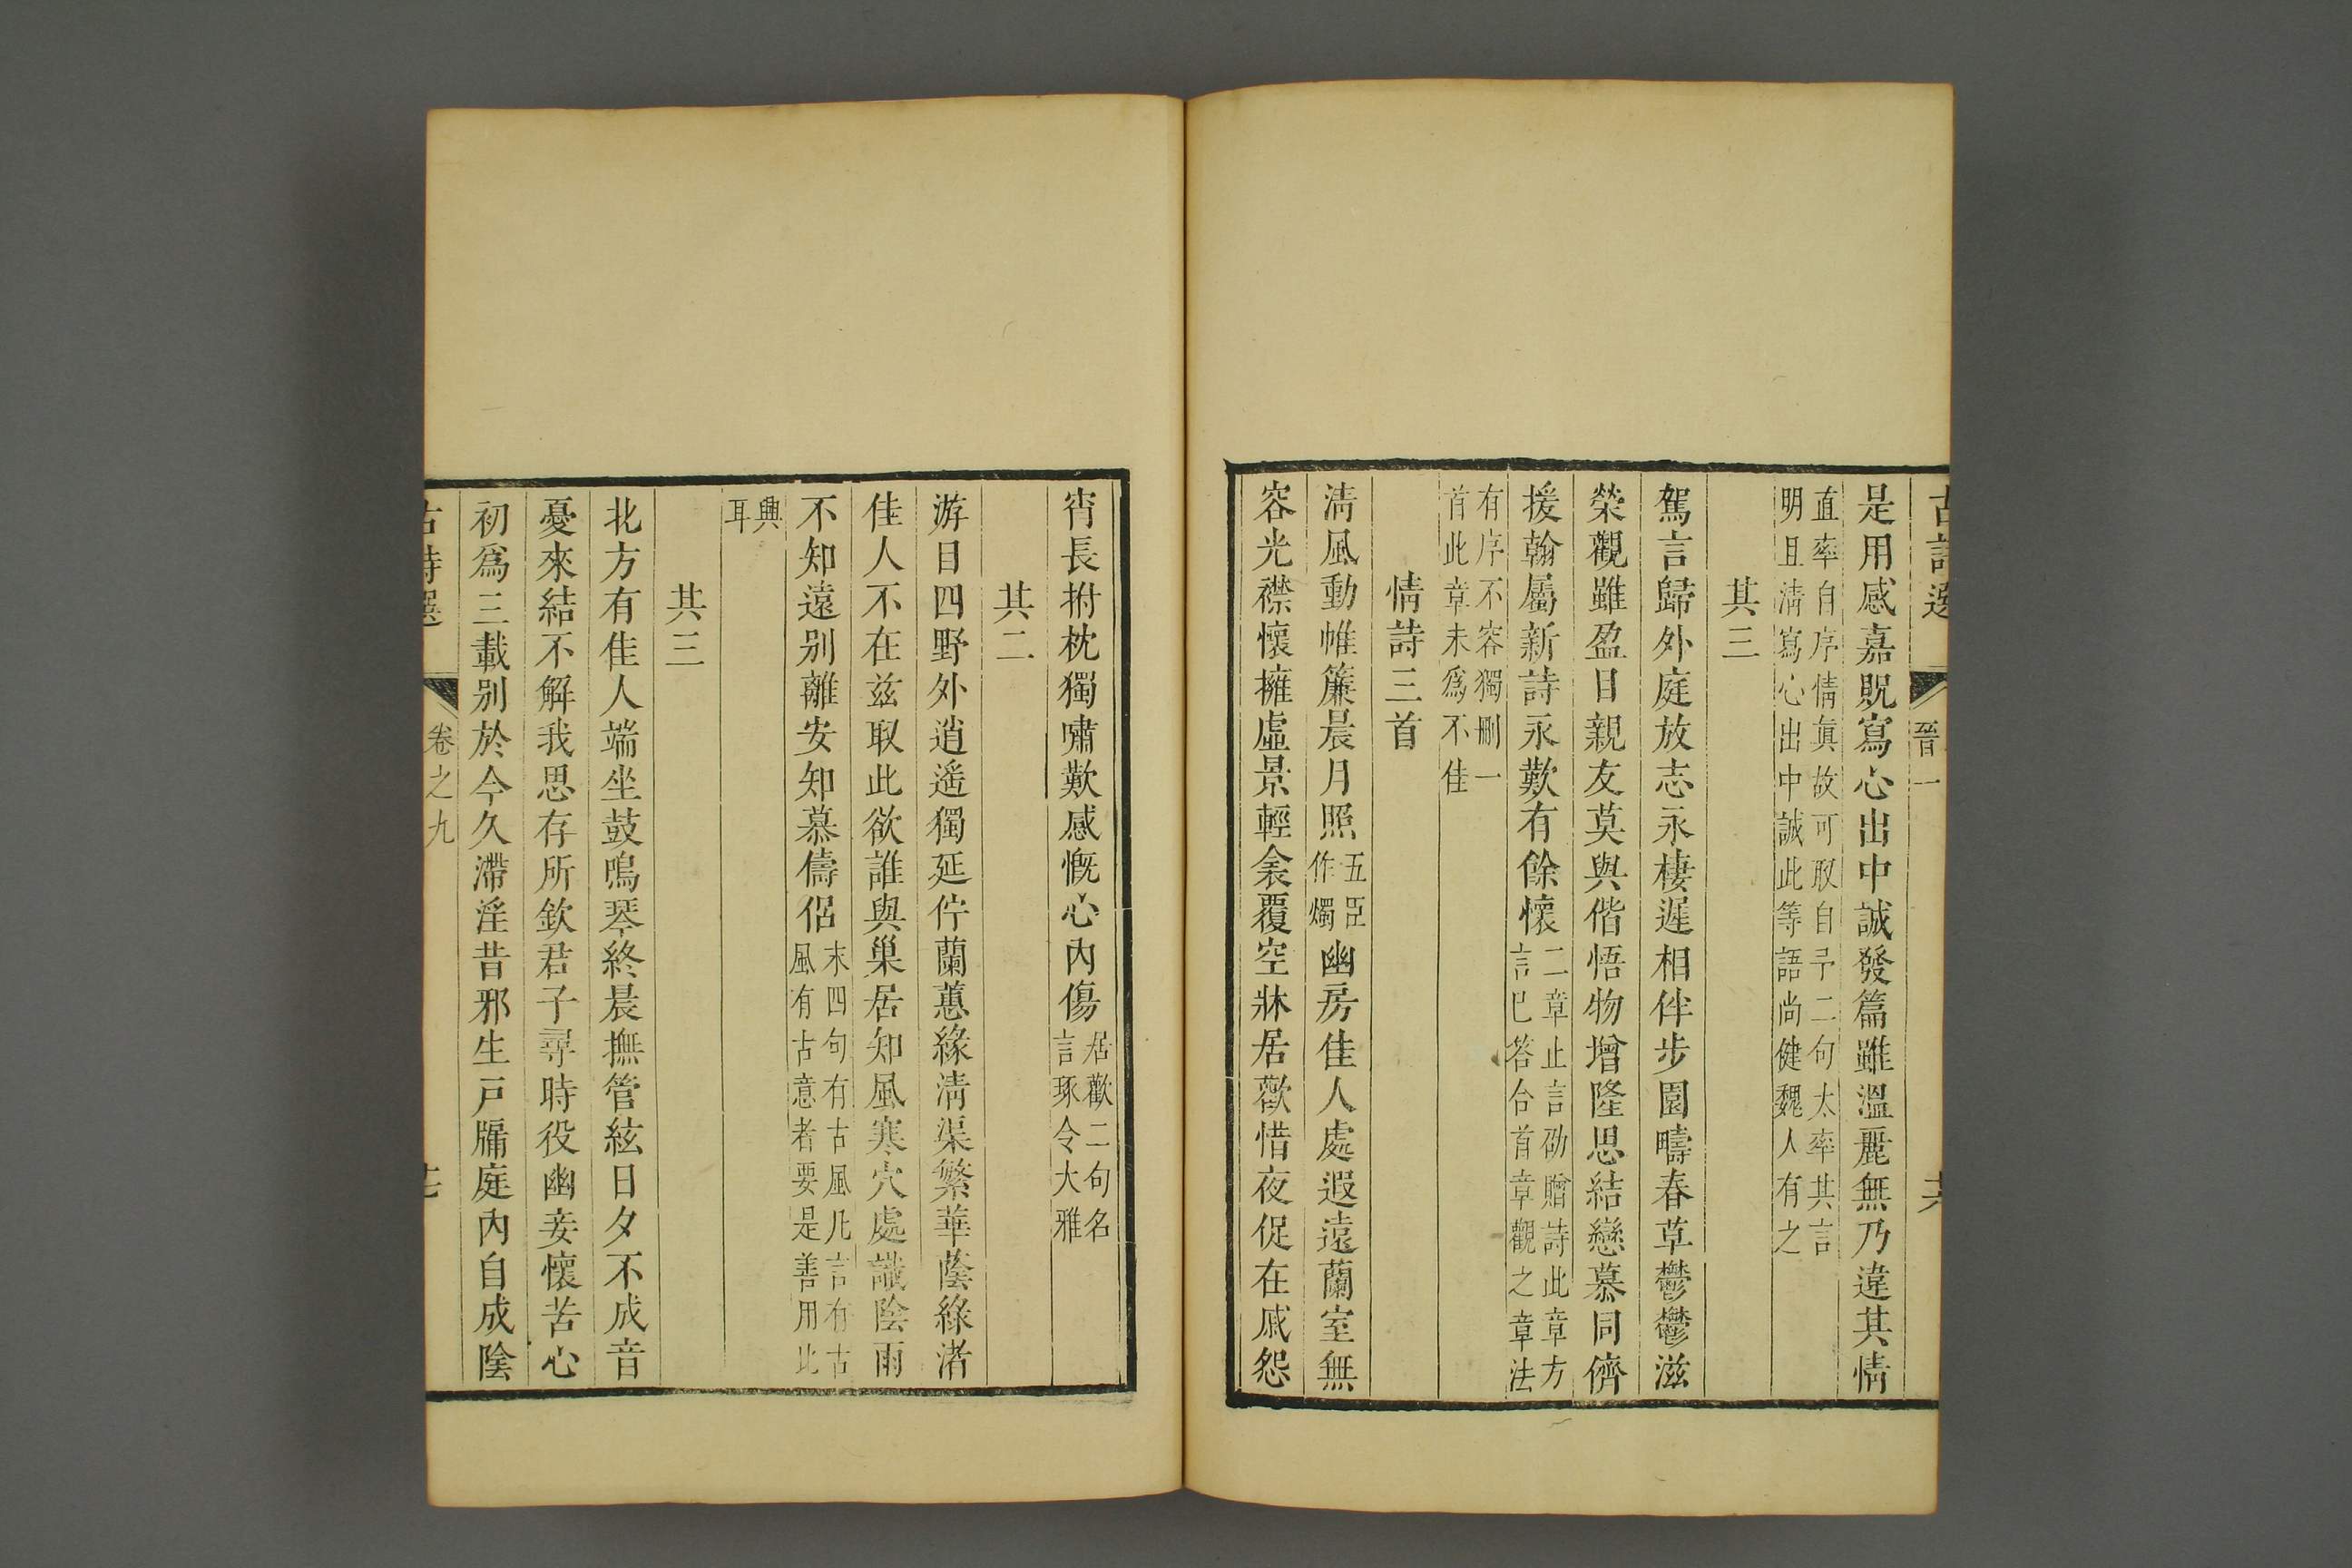 古詩選
晉一
是用感嘉貺寫心出中誠發篇雖溫麗無乃違其情
直率自序情眞故可取自予二句太率其言
明且淸寫心出中誠此等語尚健魏人有之
其三
駕言歸外庭放志永棲遲相伴步園疇春草鬱鬱滋
榮觀雖盈目親友莫與偕悟物增隆思結戀慕同儕
援翰屬新詩永歎有餘懷
二章止言劭贈詩此章方
言巳答合首章觀之章法
有序不容獨刪一
首此章未爲不佳
情詩三首
淸風動帷簾晨月照五臣作燭幽房佳人處遐遠蘭室無
容光襟懷擁虛景輕衾覆空牀居歡惜夜促在戚怨
宵長拊枕獨嘯歎感慨心內傷
居歡二句名
言琢令大雅
其二
游目四野外逍遙獨延佇蘭蕙緣淸渠繁華蔭綠渚
佳人不在兹取此欲誰與巢居知風寒穴處識陰雨
不知遠别離安知慕儔侶
末四句有古風凡言有古
風有古意者要是善用比
興
耳
其三
北方有佳人端坐鼓鳴琴終晨撫管絃日夕不成音
憂來結不解我思存所欽君子尋時役幽妾懷苦心
初爲三載别於今久滯淫昔邪生戸牖庭內自成陰
古詩選
卷之九